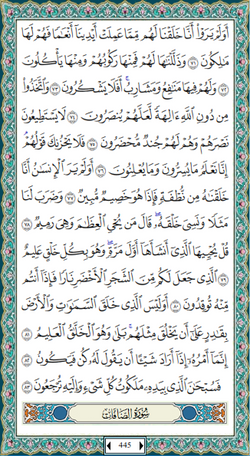 أَوَلَمْ يَرَوْا۟ أَنَّا خَلَقْنَا لَهُم مِّمَّا عَمِلَتْ أَيْدِينَآ أَنْعَٰمًا فَهُمْ لَهَا
مَٰلِكُونَ ٧١ وَذَلَّلْنَٰهَا لَهُمْ فَمِنْهَا رَكُوبُهُمْ وَمِنْهَا يَأْكُلُونَ
٧٢ وَلَهُمْ فِيهَا مَنَٰفِعُ وَمَشَارِبُ ۖ أَفَلَا يَشْكُرُونَ ٧٣ وَٱتَّخَذُوا۟
مِن دُونِ ٱللَّهِ ءَالِهَةً لَّعَلَّهُمْ يُنصَرُونَ ٧٤ لَا يَسْتَطِيعُونَ
نَصْرَهُمْ وَهُمْ لَهُمْ جُندٌ مُّحْضَرُونَ ٧٥ فَلَا يَحْزُنكَ قَوْلُهُمْ ۘ
إِنَّا نَعْلَمُ مَا يُسِرُّونَ وَمَا يُعْلِنُونَ ٧٦ أَوَلَمْ يَرَ ٱلْإِنسَٰنُ أَنَّا
خَلَقْنَٰهُ مِن نُّطْفَةٍ فَإِذَا هُوَ خَصِيمٌ مُّبِينٌ ٧٧ وَضَرَبَ لَنَا
مَثَلًا وَنَسِىَ خَلْقَهُۥ ۖ قَالَ مَن يُحْىِ ٱلْعِظَٰمَ وَهِىَ رَمِيمٌ ٧٨
قُلْ يُحْيِيهَا ٱلَّذِىٓ أَنشَأَهَآ أَوَّلَ مَرَّةٍ ۖ وَهُوَ بِكُلِّ خَلْقٍ عَلِيمٌ
٧٩ ٱلَّذِى جَعَلَ لَكُم مِّنَ ٱلشَّجَرِ ٱلْأَخْضَرِ نَارًا فَإِذَآ أَنتُم
مِّنْهُ تُوقِدُونَ ٨٠ أَوَلَيْسَ ٱلَّذِى خَلَقَ ٱلسَّمَٰوَٰتِ وَٱلْأَرْضَ
بِقَٰدِرٍ عَلَىٰٓ أَن يَخْلُقَ مِثْلَهُم ۚ بَلَىٰ وَهُوَ ٱلْخَلَّٰقُ ٱلْعَلِيمُ
٨١ إِنَّمَآ أَمْرُهُۥٓ إِذَآ أَرَادَ شَيْـًٔا أَن يَقُولَ لَهُۥ كُن فَيَكُونُ
٨٢ فَسُبْحَٰنَ ٱلَّذِى بِيَدِهِۦ مَلَكُوتُ كُلِّ شَىْءٍ وَإِلَيْهِ تُرْجَعُونَ ٨٣
سُورَةُ الصَّافَّاتِ
445